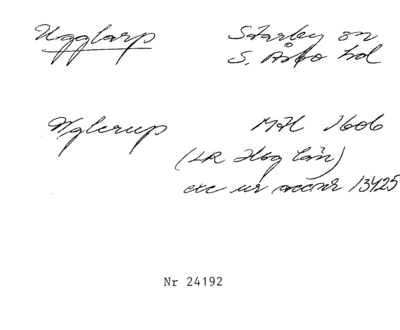 Ugglarp Starby sn
S. Åsbo hd
Uglerup MH 1606
(LR Hbg län)
exc ur accnr 13425
Nr 24192